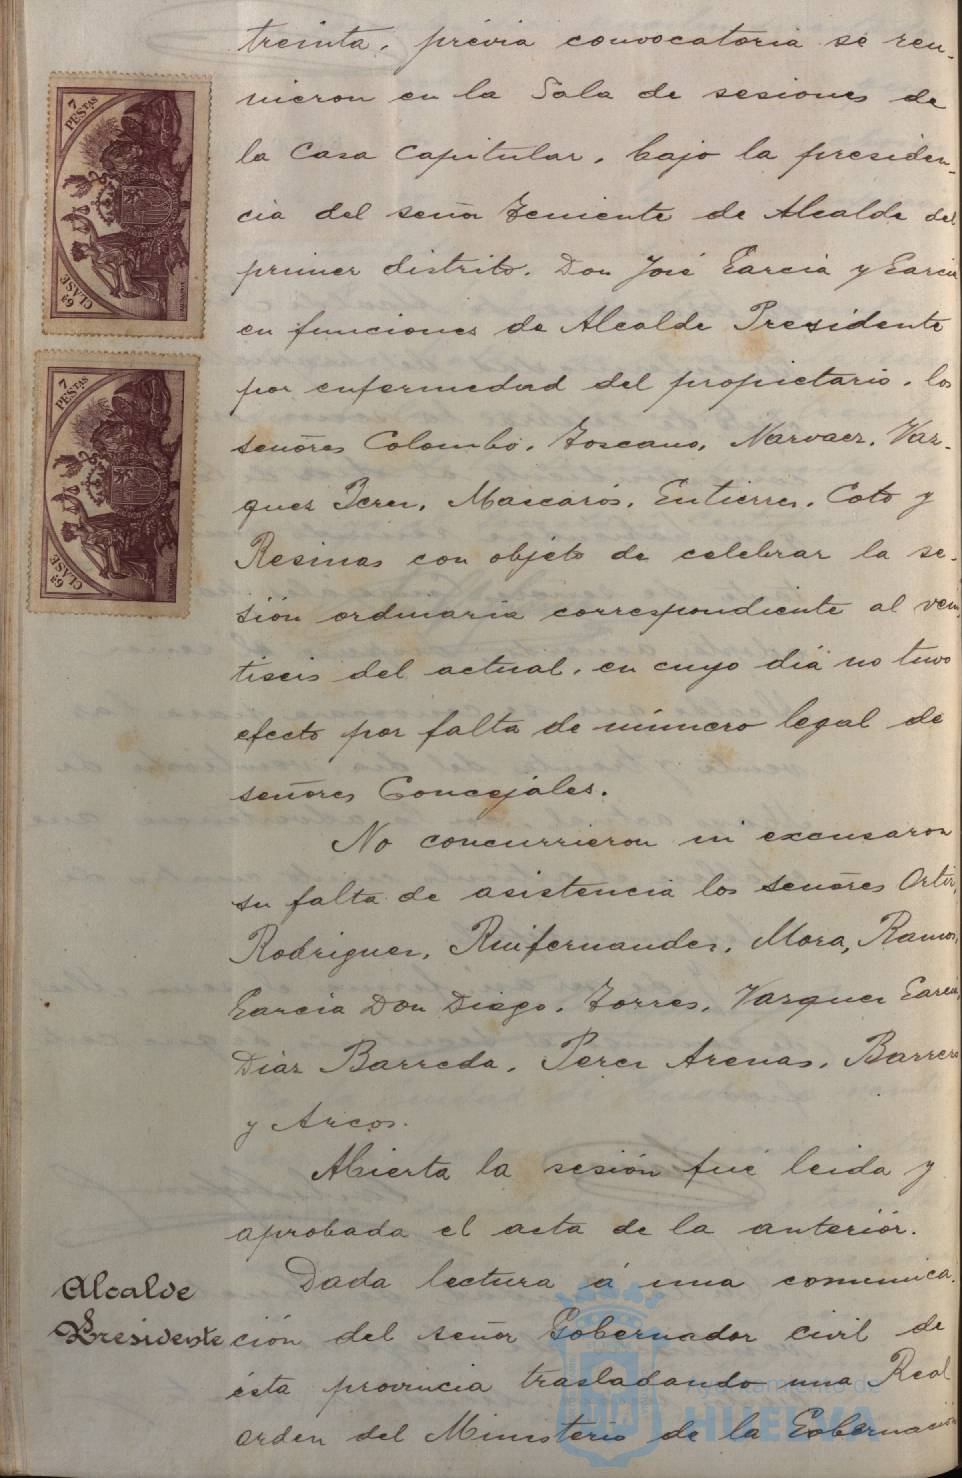 treinta, prévia convocatoria se reu-
nieron en la Sala de sesiones de
la Casa Capitular, bajo la presiden-
cia del señor Teniente de Alcalde del
primer distrito, Don José Garcia y Garcia
en funciones de Alcalde Presidente
por enfermedad del propietario, los
señores Colombo, Toscano, Narvaez, Vaz-
quez Perez, Mascarós, Gutierrez, Coto y
Resinas con objeto de celebrar la se-
sión ordinaria correspondiente al vein-
tiseis del actual, en cuyo dia no tuvo
efecto por falta de número legal de
señores Concejales.
No concurrieron ni excusaron
su falta de asistencia los señores Ortiz,
Rodriguez, Ruifernandez, Mora, Ramos,
Garcia Don Diego, Torres, Vazquez Garcia,
Diaz Barreda, Perez Arenas, Barrera
y Arcos.
Abierta la sesión fué leida y
aprobada el acta de la anteriór.
Alcalde
Presidente
Dada lectura á una comunica-
ción del señor Gobernador civil de
ésta provincia trasladando una Real
orden del Ministerio de la Gobernación
7
PESTAS
6ª
CLASE
7
PESTAS
6ª
CLASE
Ayuntamiento de
HUELVA